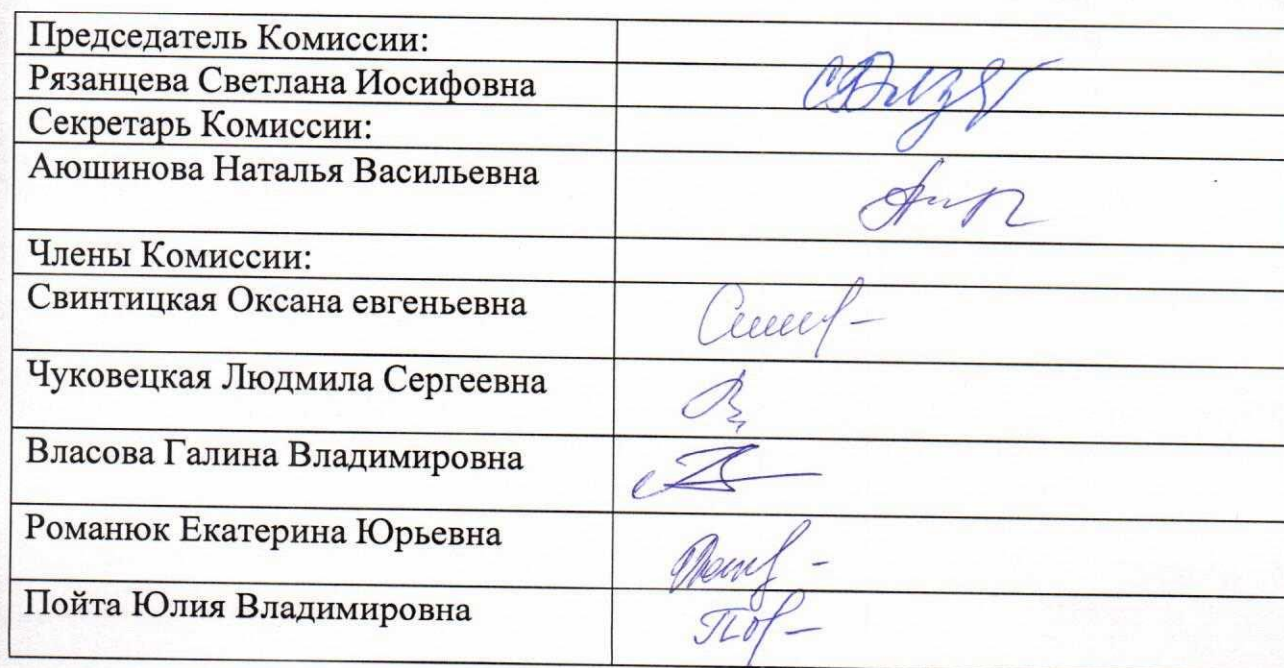 Председатель Комиссии:
Рязанцева Светлана Иосифовна
Секретарь Комиссии:
Аюшинова Наталья Васильевна
Члены Комиссии:
Свинтицкая Оксана евгеньевна
Чуковецкая Людмила Сергеевна
Власова Галина Владимировна
Романюк Екатерина Юрьевна
Пойта Юлия Владимировна